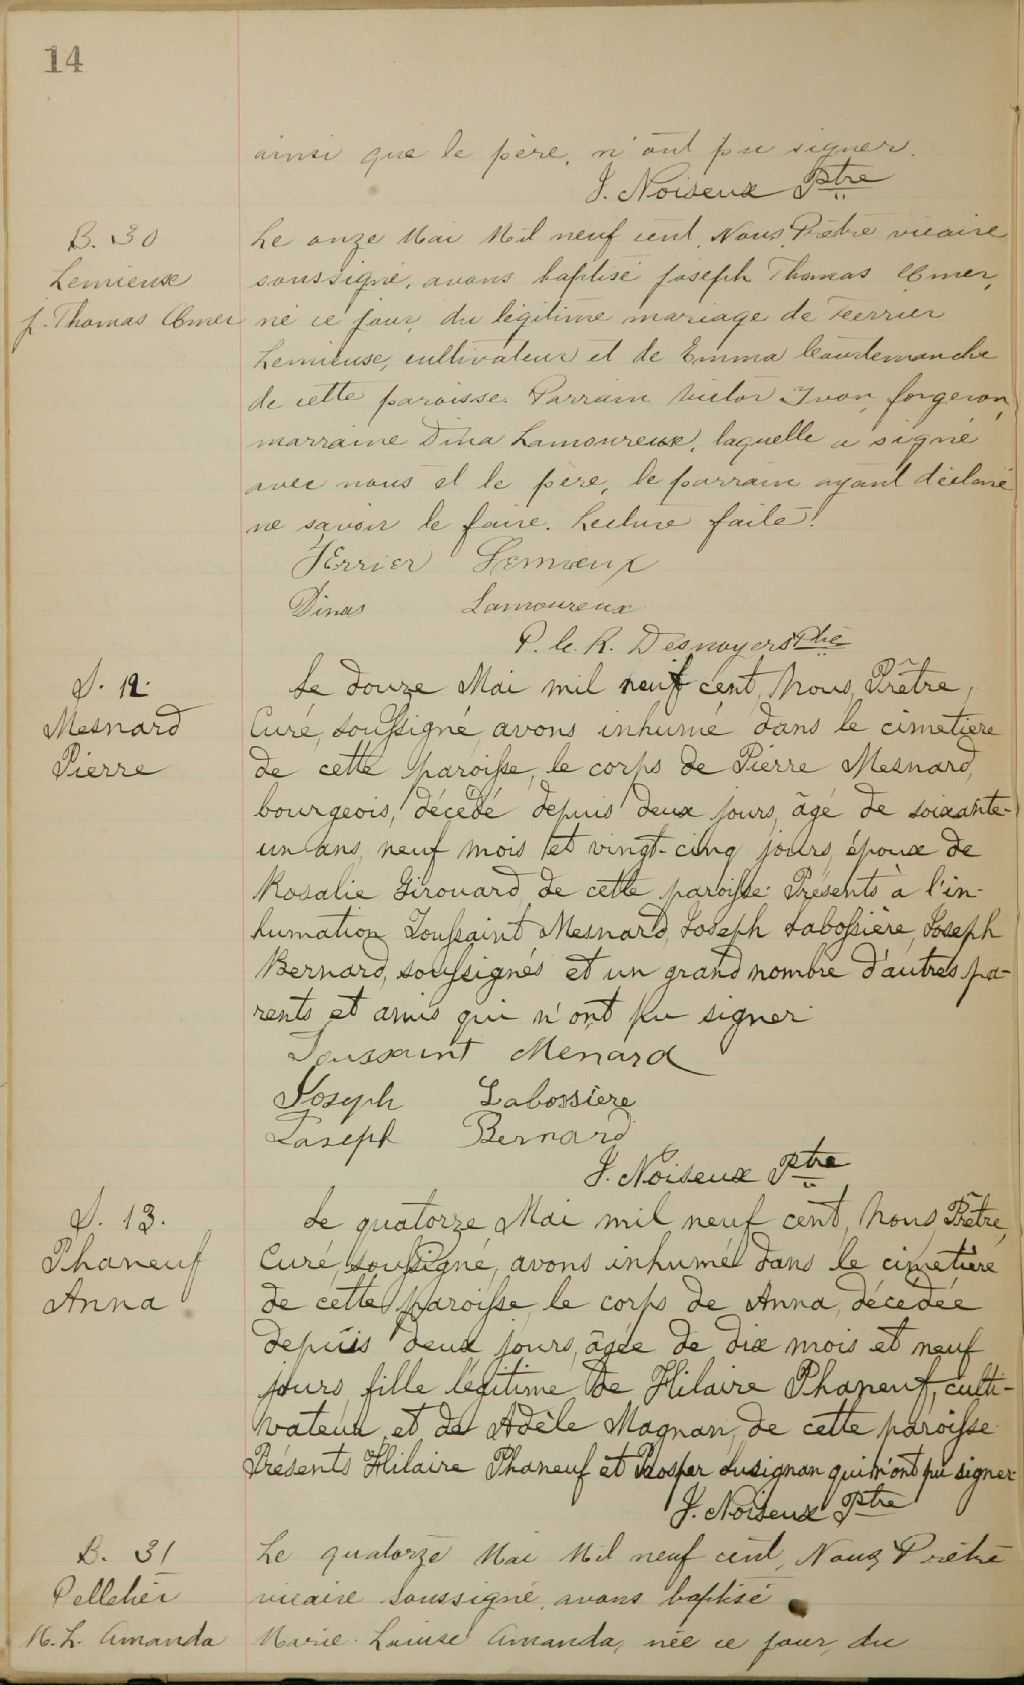 14
ainsi que le père, n'ont pu signer.
J. Noiseux Ptre
B. 30
Lemieux
J. Thomas Omer
Le onze Mai Mil neuf cent, Nous, Prêtre vicaire
soussigné, avons baptisé Joseph Thomas Omer,
né ce jour, du légitime mariage de Ferrier
Lemieux, cultivateur et de Emma Courtemanche
de cette paroisse. Parrain Victor Ivon, forgeron,
marraine Dina Lamoureux, laquelle a signé
avec nous et le père, le parrain ayant déclaré
ne savoir le faire. Lecture faite!
Ferrier Lemieux
Dinas Lamoureux
P. le. R. Desnoyers Ptre
S. 12.
Mesnard
Pierre
Le douze Mai mil neuf cent, Nous, Prêtre,
Curé, soussigné, avons inhumé dans le cimetière
de cette paroisse, le corps de Pierre Mesnard,
bourgeois, décédé depuis deux jours, âgé de soixante-
un ans, neuf mois et vingt-cinq jours, époux de
Rosalie Girouard, de cette paroisse. Présents à l'in-
humation Toussaint Mesnard, Joseph Labossière, Joseph
Bernard, soussignés et un grand nombre d'autres pa-
rents et amis qui n'ont pu signer
Toussaint Menard
Joseph Labossière
Joseph Bernard
J. Noiseux Ptre
S. 13.
Phaneuf
Anna
Le quatorze Mai mil neuf cent, Nous, Prêtre,
Curé, soussigné, avons inhumé dans le cimetière
de cette paroisse, le corps de Anna, décédée
depuis deux jours, âgée de dix mois et neuf
jours, fille légitime de Hilaire Phaneuf, culti-
vateur, et de Adèle Magnan, de cette paroisse.
Présents Hilaire Phaneuf et Prosper Lusignan qui n'ont pu signer
J. Noiseux Ptre
B. 31
Pelletier
M. L. Amanda
Le quatorze Mai Mil neuf cent, Nous, Prêtre
vicaire soussigné, avons baptisé
Marie Louise Amanda, née ce jour, du